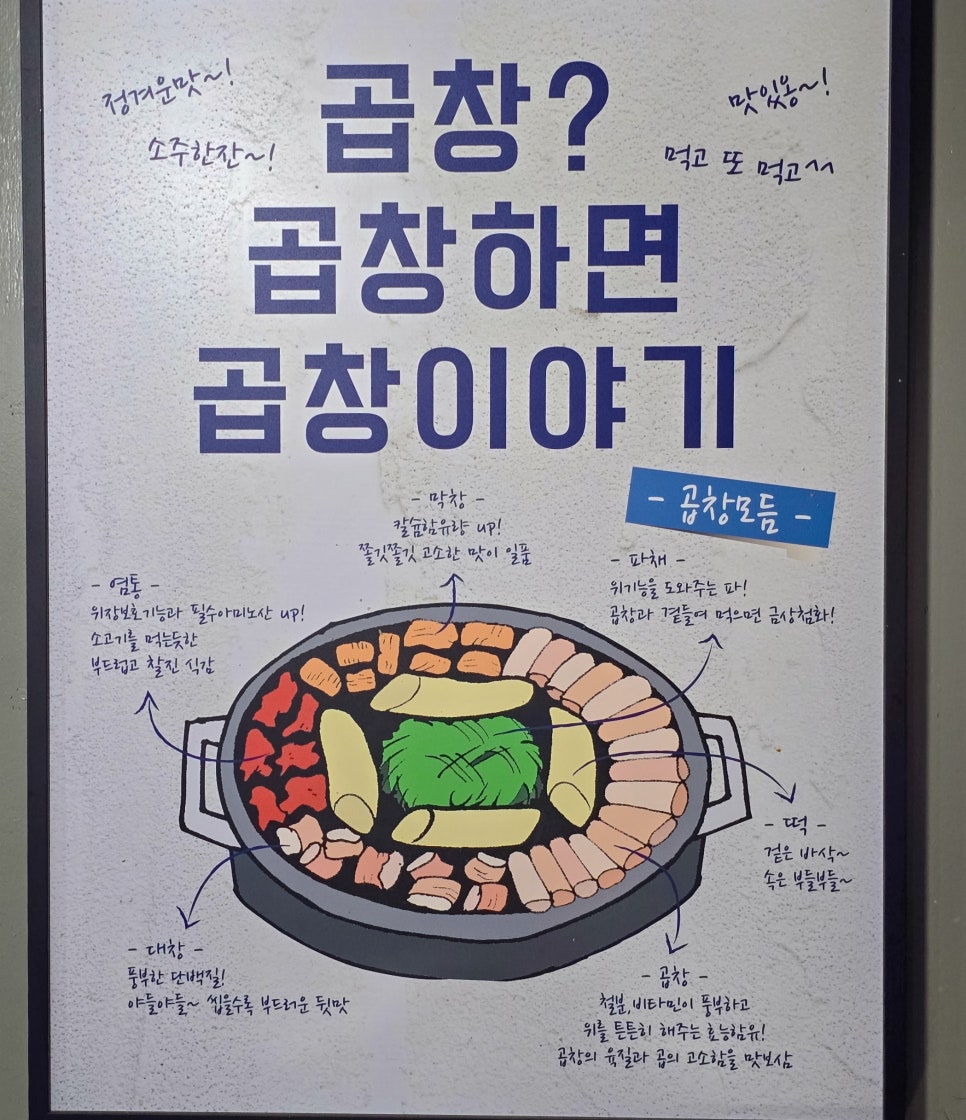 정겨운맛~!
소주한잔~!
곱창?
맛있옹~!
먹고 또 먹고^^
곱창하면
곱창이야기
- 곱창모듬 -
- 막창 -
칼슘함유량 up!
쫄깃쫄깃 고소한 맛이 일품
- 파채 -
위기능을 도와주는 파!
곱창과 곁들여 먹으면 금상첨화!
- 염통 -
위장보호기능과 필수아미노산 up!
소고기를 먹는듯한
부드럽고 찰진 식감
- 떡 -
겉은 바삭~
속은 부들부들~
- 대창 -
풍부한 단백질!
야들야들~ 씹을수록 부드러운 뒷맛
- 곱창 -
철분,비타민이 풍부하고
위를 튼튼히 해주는 효능함유!
곱창의 육질과 곱의 고소함을 맛보삼